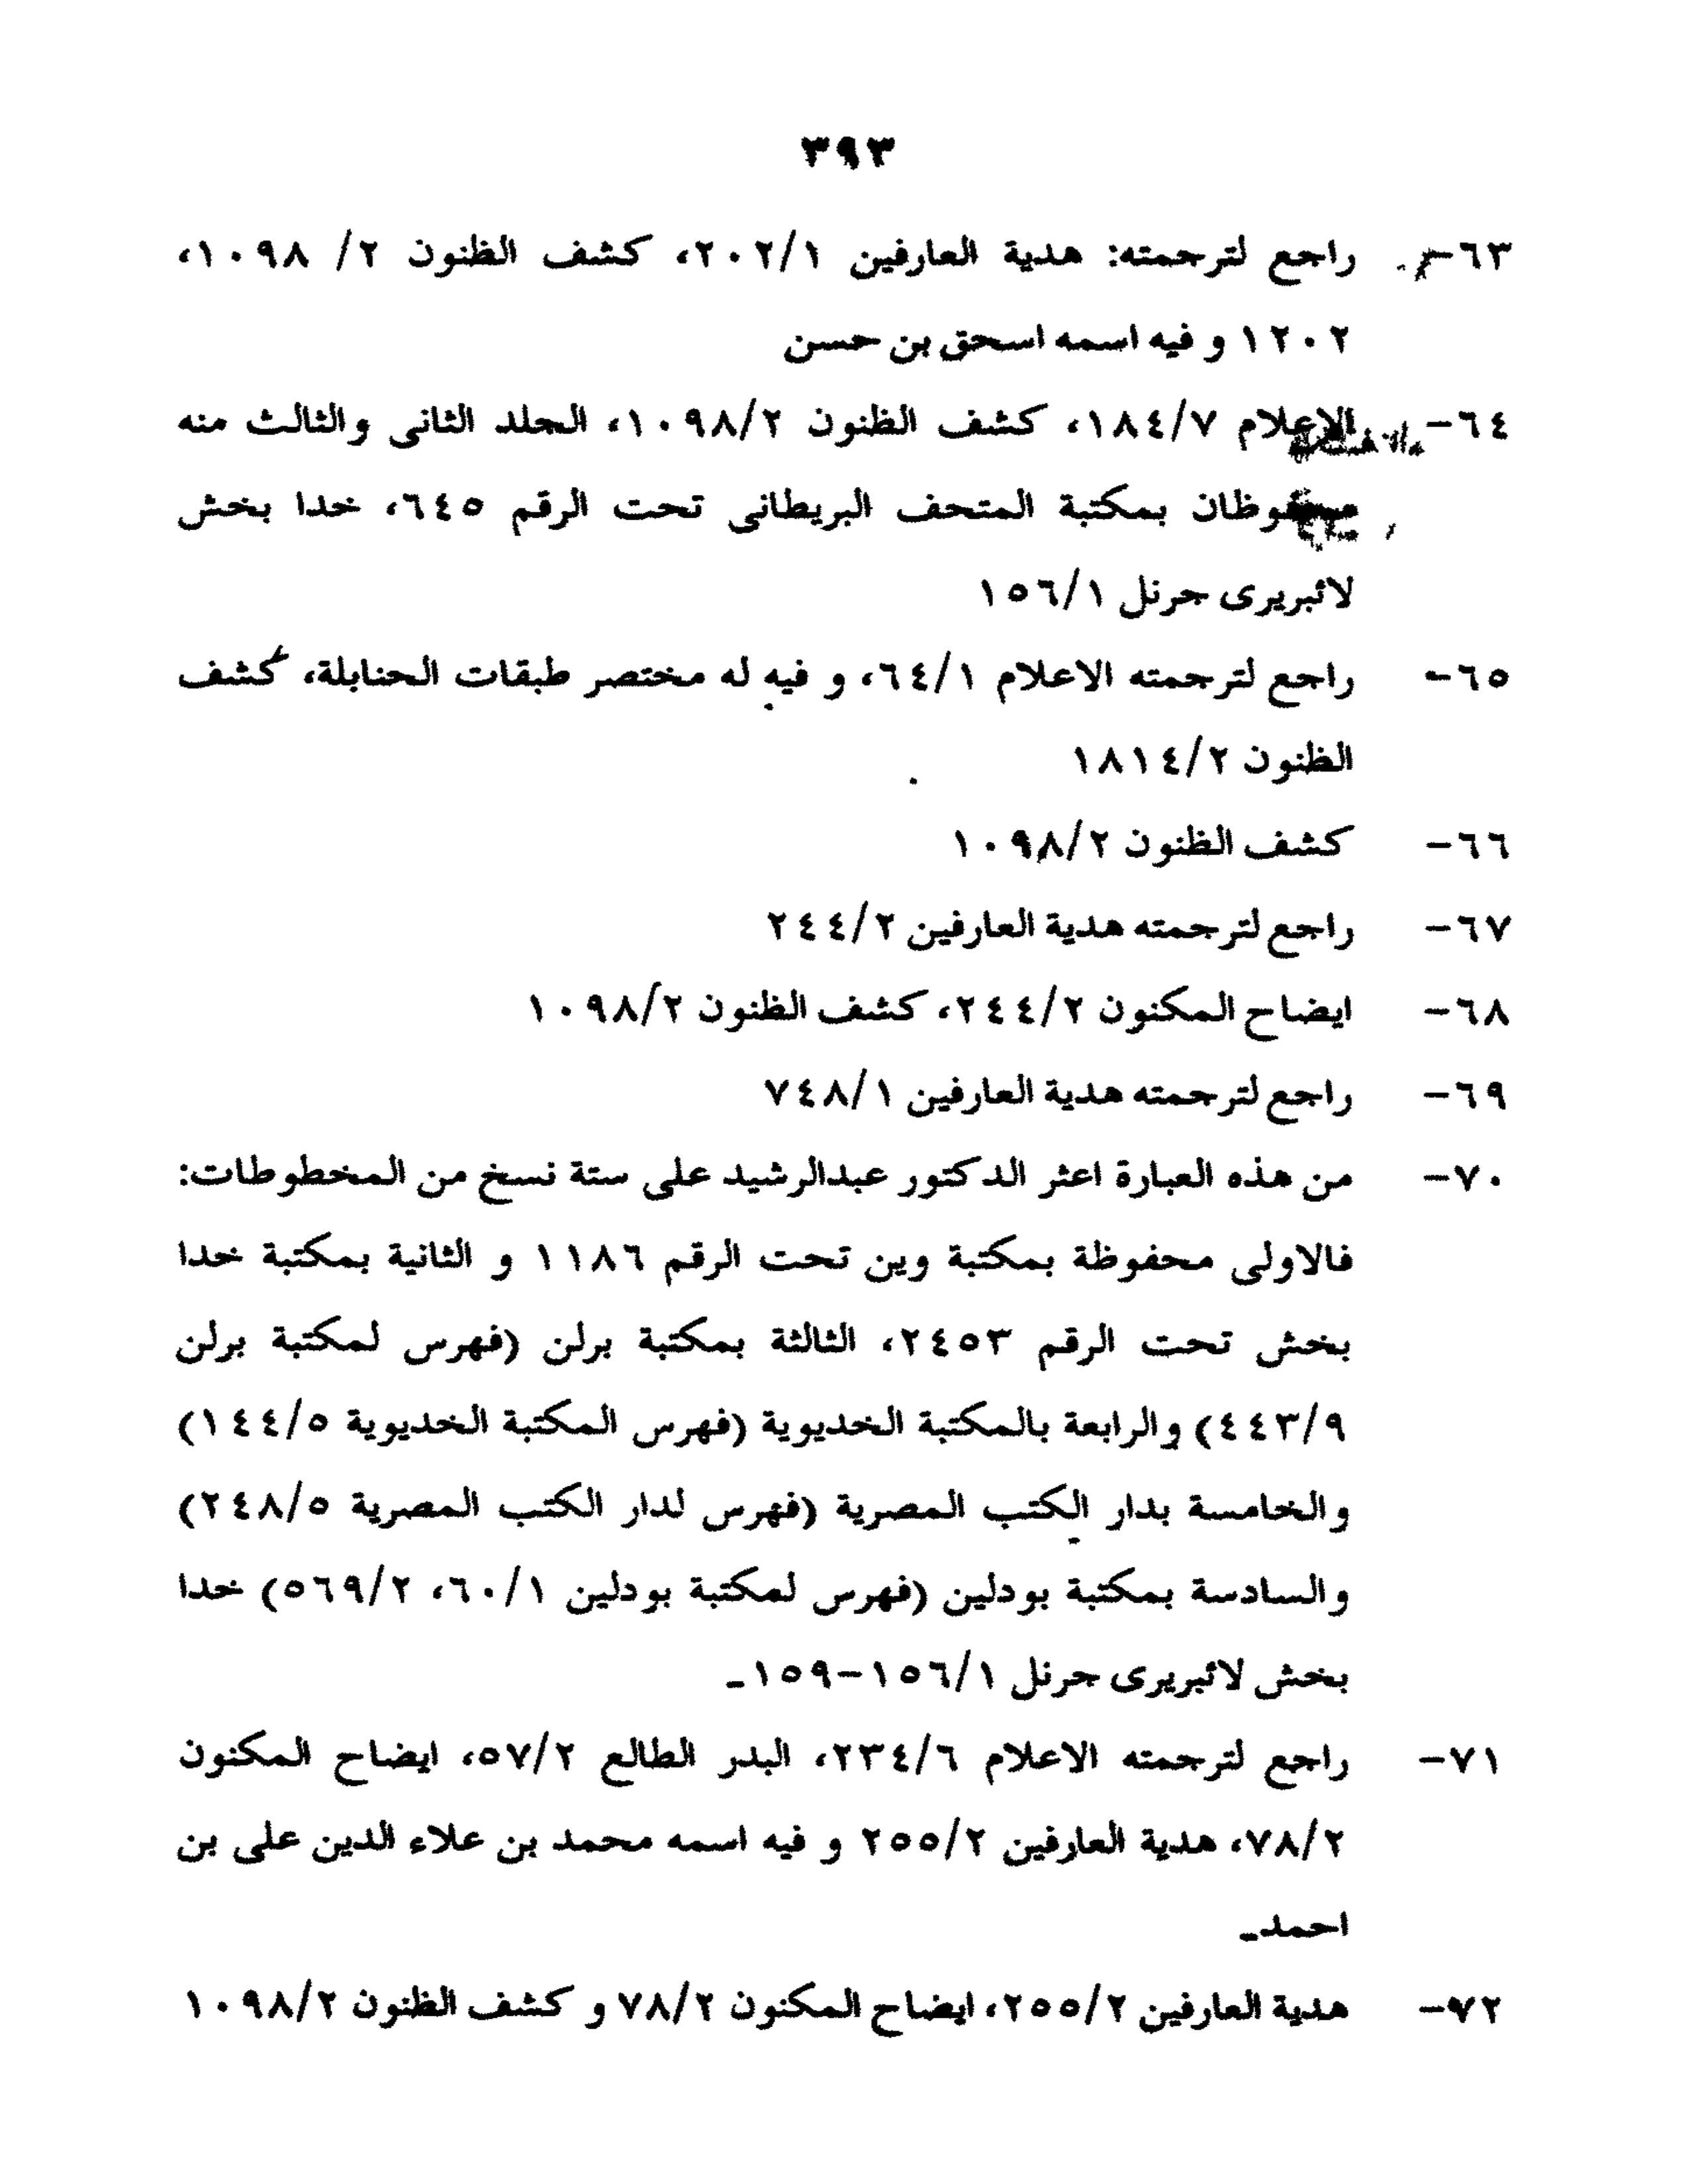 ٣٩٣
٦٣- راجع لترجمته: هدية العارفين ٢٠٢/١، كشف الظنون ٢/ ١٠٩٨،
١٢٠٢ و فيه اسمه اسحق بن حسن
٦٤- الاعلام ١٨٤/٧، كشف الظنون ١٠٩٨/٢، الجلد الثانى والثالث منه
محفوظان بمكتبة المتحف البريطانى تحت الرقم ٦٤٥، خدا بخش
لائبريرى جرنل ١٥٦/١
٦٥- راجع لترجمته الاعلام ٦٤/١، و فيه له مختصر طبقات الحنابلة، كشف
الظنون ١٨١٤/٢
٦٦- كشف الظنون ١٠٩٨/٢
٦٧- راجع لترجمته هدية العارفين ٢٤٤/٢
٦٨- ايضاح المكنون ٢٤٤/٢، كشف الظنون ١٠٩٨/٢
٦٩- راجع لترجمته هدية العارفين ٧٤٨/١
٧٠- من هذه العبارة اعثر الدكتور عبدالرشيد على ستة نسخ من المخطوطات:
فالاولى محفوظة بمكتبة وين تحت الرقم ١١٨٦ و الثانية بمكتبة خدا
بخش تحت الرقم ٢٤٥٣، الثالثة بمكتبة برلن (فهرس لمكتبة برلن
٤٤٣/٩) والرابعة بالمكتبة الخديوية (فهرس المكتبة الخديوية ١٤٤/٥)
والخامسة بدار الكتب المصرية (فهرس لدار الكتب المصرية ٢٤٨/٥)
والسادسة بمكتبة بودلين (فهرس لمكتبة بودلين ٦٠/١، ٥٦٩/٢) خدا
بخش لائبريرى جرنل ١٥٦/١-١٥٩ـ
٧١- راجع لترجمته الاعلام ٢٣٤/٦، البدر الطالع ٥٧/٢، ايضاح المكنون
٧٨/٢، هدية العارفين ٢٥٥/٢ و فيه اسمه محمد بن علاء الدين على بن
احمدـ
٧٢- هدية العارفين ٢٥٥/٢، ايضاح المكنون ٧٨/٢ و كشف الظنون ١٠٩٨/٢